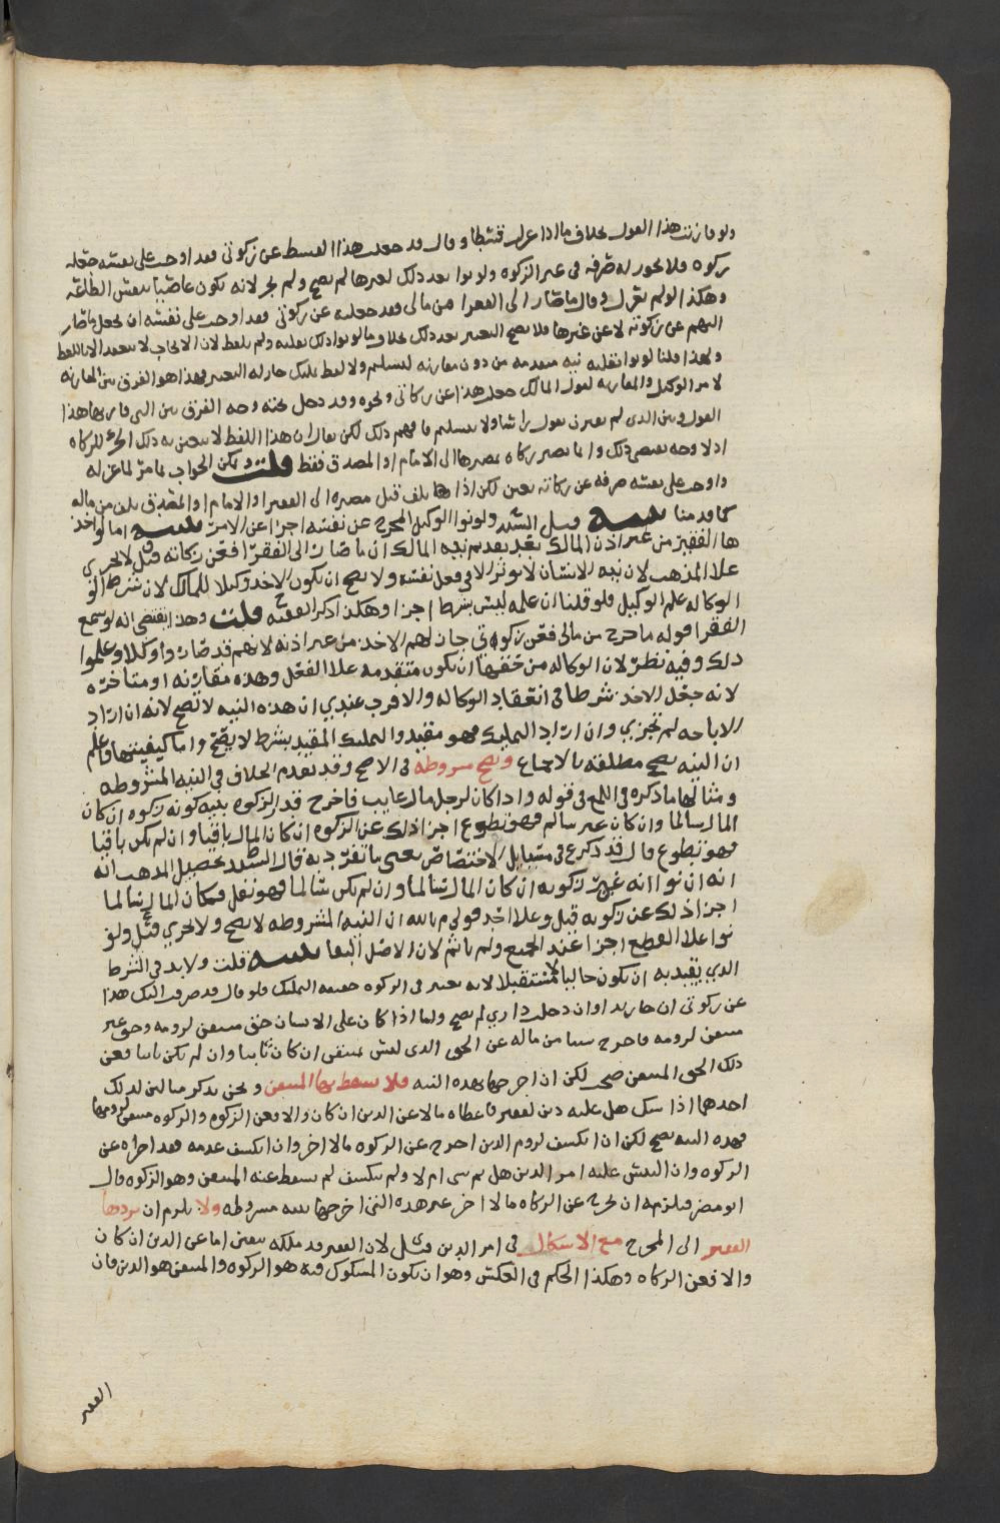 ولو قارنت هذا القول بخلاف ما اذا عزل قسطا وقال قد جعلت هذا القسط عن زكوتي فقد اوجب على نفسه جعله
زكوه فلا يجوز له صرفه في غير الزكوه ولو نوا بعد ذلك لغيرها لم يصح ولم يجز لانه يكون عاصيا
وهكذا لو لم يعزل وقال ما صار الى الفقرا من مالي فقد جعلته عن زكوتي فقد اوجب على نفسه ان يجعل ما صار
اليهم عن زكوته لا عن غيرها فلا يصح التغيير بعد ذلك بخلاف ما لو نوا ذلك بقلبه ولم يلفظ لان الايجاب لا ينعقد الا باللفظ
ولهذا قلنا لو نوا بقلبه نيه متقدمه من دون مقارنه لتسليم ولا لفظ تمليك جاز له التغيير فهذا هو الفرق بين المقارنه
لامر الوكيل والمقارنه لقول المالك جعلت هذا عن زكاتي ونحوه وقد دخل تحته وجه الفرق بين التي قارنها هذا
القول وبين الذي لم يقترن بقول راسا ولا تسليم فافهم ذلك لكن يقال ان هذا اللفظ لا يتعين به ذلك الجزء للزكاه
اذ لا وجه يقتضي ذلك وانما يصير زكاه بمصيرها الى الامام او المصدق فقط قلت ويمكن الجواب بما مر لما عزله
واوجب على نفسه صرفه عن زكاته تعين لكن اذا تلف قبل مصيره الى الفقير او الامام او المصدق تلف من ماله
كما قدمنا تنبيه قيل السيد ولو نوا الوكيل المخرج عن نفسه اجزا عن الامر تنبيه اما لو اخذ
ها الفقير من غير اذن المالك بعد تقديم نيه المالك ان ما صار الى الفقرا فعن زكاته قيل لا يجزي
علا المذهب لان نيه الانسان لا تؤثر الا في فعل نفسه ولا يصح ان يكون الاخذ وكيلا للمالك لان شرط
الوكاله علم الوكيل فلو قلنا ان علمه ليس بشرط اجزا وهكذا ذكر الفقيه ح قلت وهذا يقتضي انه لو سمع
الفقرا قوله ما خرج من مالي فعن زكوتي جاز لهم الاخذ من غير اذنه لانهم قد صاروا وكلا وعلموا
ذلك وفيه نظر لان الوكاله من حقها ان يكون متقدمه علا الفعل وهذه مقارنه او متاخره
لانه جعل الاخذ شرطا في انعقاد الوكاله والاقرب عندي ان هذه النيه لا تصح لانه ان اراد
الاباحه لم تجزي وان اراد التمليك فهو مقيد والتمليك المقيد بشرط لا يصح واما كيفيتها فاعلم
ان النيه تصح مطلقه بالاجماع وتصح مشروطه في الاصح وقد تقدم الخلاف في النيه المشروطه
ومثالها ما ذكره في اللمع في قوله واذا كان لرجل مال غايب فاخرج قدر الزكوه بنيه كونه زكوه ان كان
المال سالما وان كان غير سالم فهو تطوع اجزا ذلك عن الزكوه ان كان المال باقيا وان لم يكن باقيا
فهو تطوع قال قد ذكر ع في مسايل الاختصاص يعني ما تفرد به قال السيد تحصيل المذهب انه
انه ان نوا انه عن زكوته ان كان المال سالما وان لم يكن سالما فهو نفل فكان المال سالما
اجزا ذلك عن زكوته قيل وعلا احد قولي م بالله ان النيه المشروطه لا يصح ولا يجزي قيل ولو
نوا علا القطع اجزا عند الجميع ولم ياثم لان الاصل البقا تنبيه قلت ولا بد في الشرط
الذي يقيد به ان يكون حاليا لا مستقبلا لانه يعتبر في الزكوه حقيقه التمليك فلو قال قد صرفت اليك هذا
عن زكوتي ان جا زيد او ان دخلت داري لم يصح ولما اذا كان على الانسان حق متيقن لزومه وحق غير
متيقن لزومه فاخرج شيا من ماله عن الحق الذي ليس بمتيقن ان كان ثابتا وان لم يكن ثابتا فعن
ذلك الحق المتيقن صحت لكن ان اخرجها بهذه النيه فلا يسقط بها المتيقن ونحن نذكر مثالين لذلك
احدهما اذا شك هل عليه دين لفقير فاعطاه مالا عن الدين ان كان والا فعن الزكوه والزكوه متيقن لزومها
فهذه النيه تصح لكن ان انكشف لزوم الدين اخرج عن الزكوه مالا اخر وان انكشف عدمه فقد اجزاه عن
الزكوه وان التبس عليه امر الدين هل ثم شي ام لا ولم ينكشف لم يسقط عنه المتيقن وهو الزكوه قال
ابو مضر فيلزمه ان يخرج عن الزكاه مالا اخر غير هذه التي اخرجها بنيه مشروطه ولا يلزم ان يردها
الفقير الى المخرج مع الاشكال في امر الدين قيل لان الفقير قد ملكه بيقين اما عن الدين ان كان
والا فعن الزكاه وهكذا الحكم في العكس وهو ان يكون المشكوك فيه هو الزكوه والمتيقن هو الدين فان
الفقير